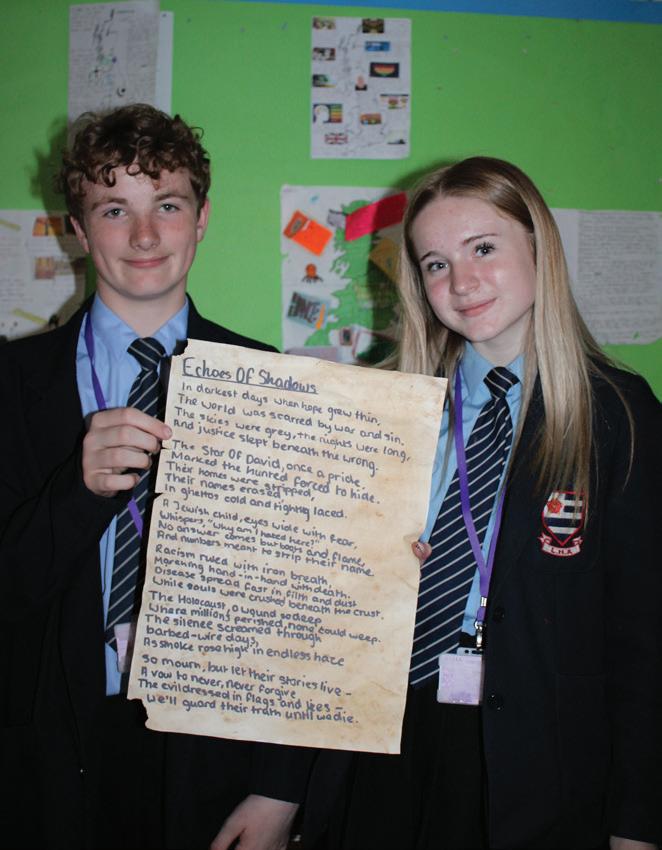 Echoes Of Shadows
In darkest days when hope grew thin,
The world was scarred by war and sin.
The skies were grey, the nights were long,
And justice slept beneath the wrong.
The Star Of David, once a pride,
Marked the hunted forced to hide.
Their homes were stripped,
Their names erased,
In ghettos cold and tightly laced.
A Jewish child, eyes wide with fear,
Whispers, "Why am I hated here?"
No answer comes but boots and flame,
And numbers meant to strip their name
Racism ruled with iron breath,
Marching hand-in-hand with death.
Disease spread fast in filth and dust
While souls were crushed beneath the crust.
The Holocaust, a wound so deep
Where millions perished, none could weep.
The silence screamed through
barbed-wire days,
As smoke rose high in endless haze
So mourn, but let their stories live -
A vow to never, never forgive
The evil dressed in flags and lies -
We'll guard their truth until we die.
L.H.A